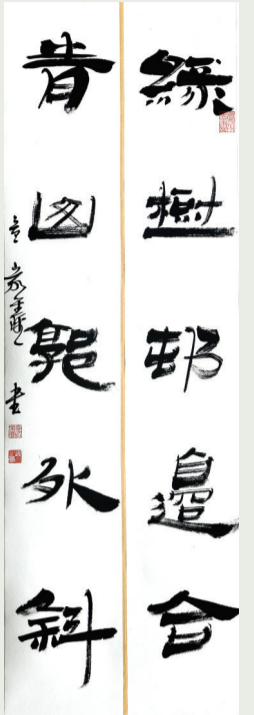 綠樹邨邊合
青山郭外斜